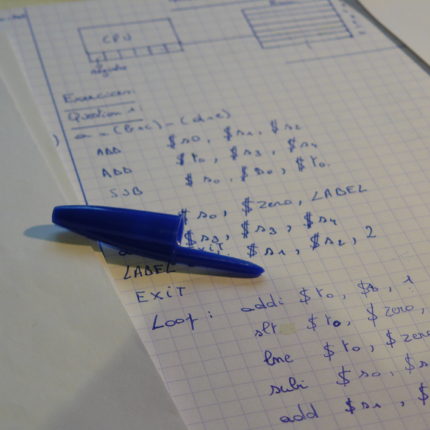 CPU
Exercices
Question 1:
a = (b+c) - (d+e)
ADD $s0, $s1, $s2
ADD $t0, $s3, $s4
SUB $s0, $s0, $t0.
$s0, $zero, LABEL
$s3, $s3, $s4
$s1, $s2, 2
LABEL
EXIT
Loop: addi $t0, $s0, 1
slt $t0, $zero,
bne $t0, $zero
subi $s0, $s
add $s1, $s